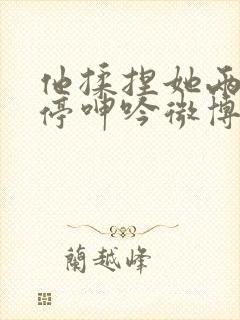 他揉捏她两
停呻吟微博
蘭越峰